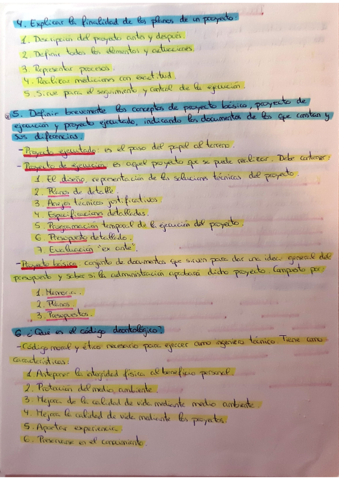 4. Explicar la finalidad de los planos de un proyecto
1. Descripción del proyecto antes y después.
2. Definir todos los elementos y actuaciones.
3. Representar procesos.
4. Realizar mediciones con exactitud.
5. Sirve para el seguimiento y control de la ejecución.
5. Definir brevemente los conceptos de proyecto básico, proyecto de
ejecución y proyecto ejecutado, indicando los documentos de los que constan y
sus diferencias.
- Proyecto ejecutado: es el paso del papel al terreno.
- Proyecto de ejecución: es aquel proyecto que se puede realizar. Debe contener:
1. El diseño, representación de la solución técnica del proyecto.
2. Planos de detalle.
3. Anejos técnicos justificativos.
4. Especificaciones detalladas.
5. Programación temporal de la ejecución del proyecto.
6. Presupuesto detallado.
7. Evaluación "ex ante".
- Proyecto básico: conjunto de documentos que sirven para dar una idea general del
presupuesto y sobre si la administración aprobaría dicho proyecto. Compuesto por:
1. Memoria.
2. Planos.
3. Presupuestos.
6. ¿Qué es el código deontológico?
- Código moral y ético necesario para ejercer como ingeniero técnico. Tiene como
características:
1. Anteponer la integridad física al beneficio personal.
2. Protección del medio ambiente.
3. Mejora de la calidad de vida mediante medio ambiente.
4. Mejora la calidad de vida mediante los proyectos.
5. Aportar experiencia.
6. en el conocimiento.